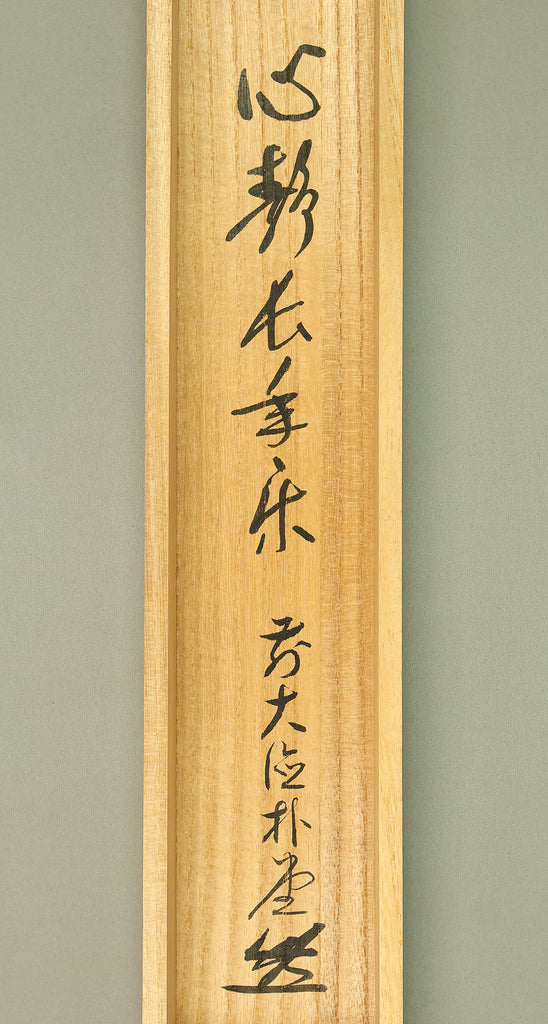 心静長年楽 前大徳朴堂